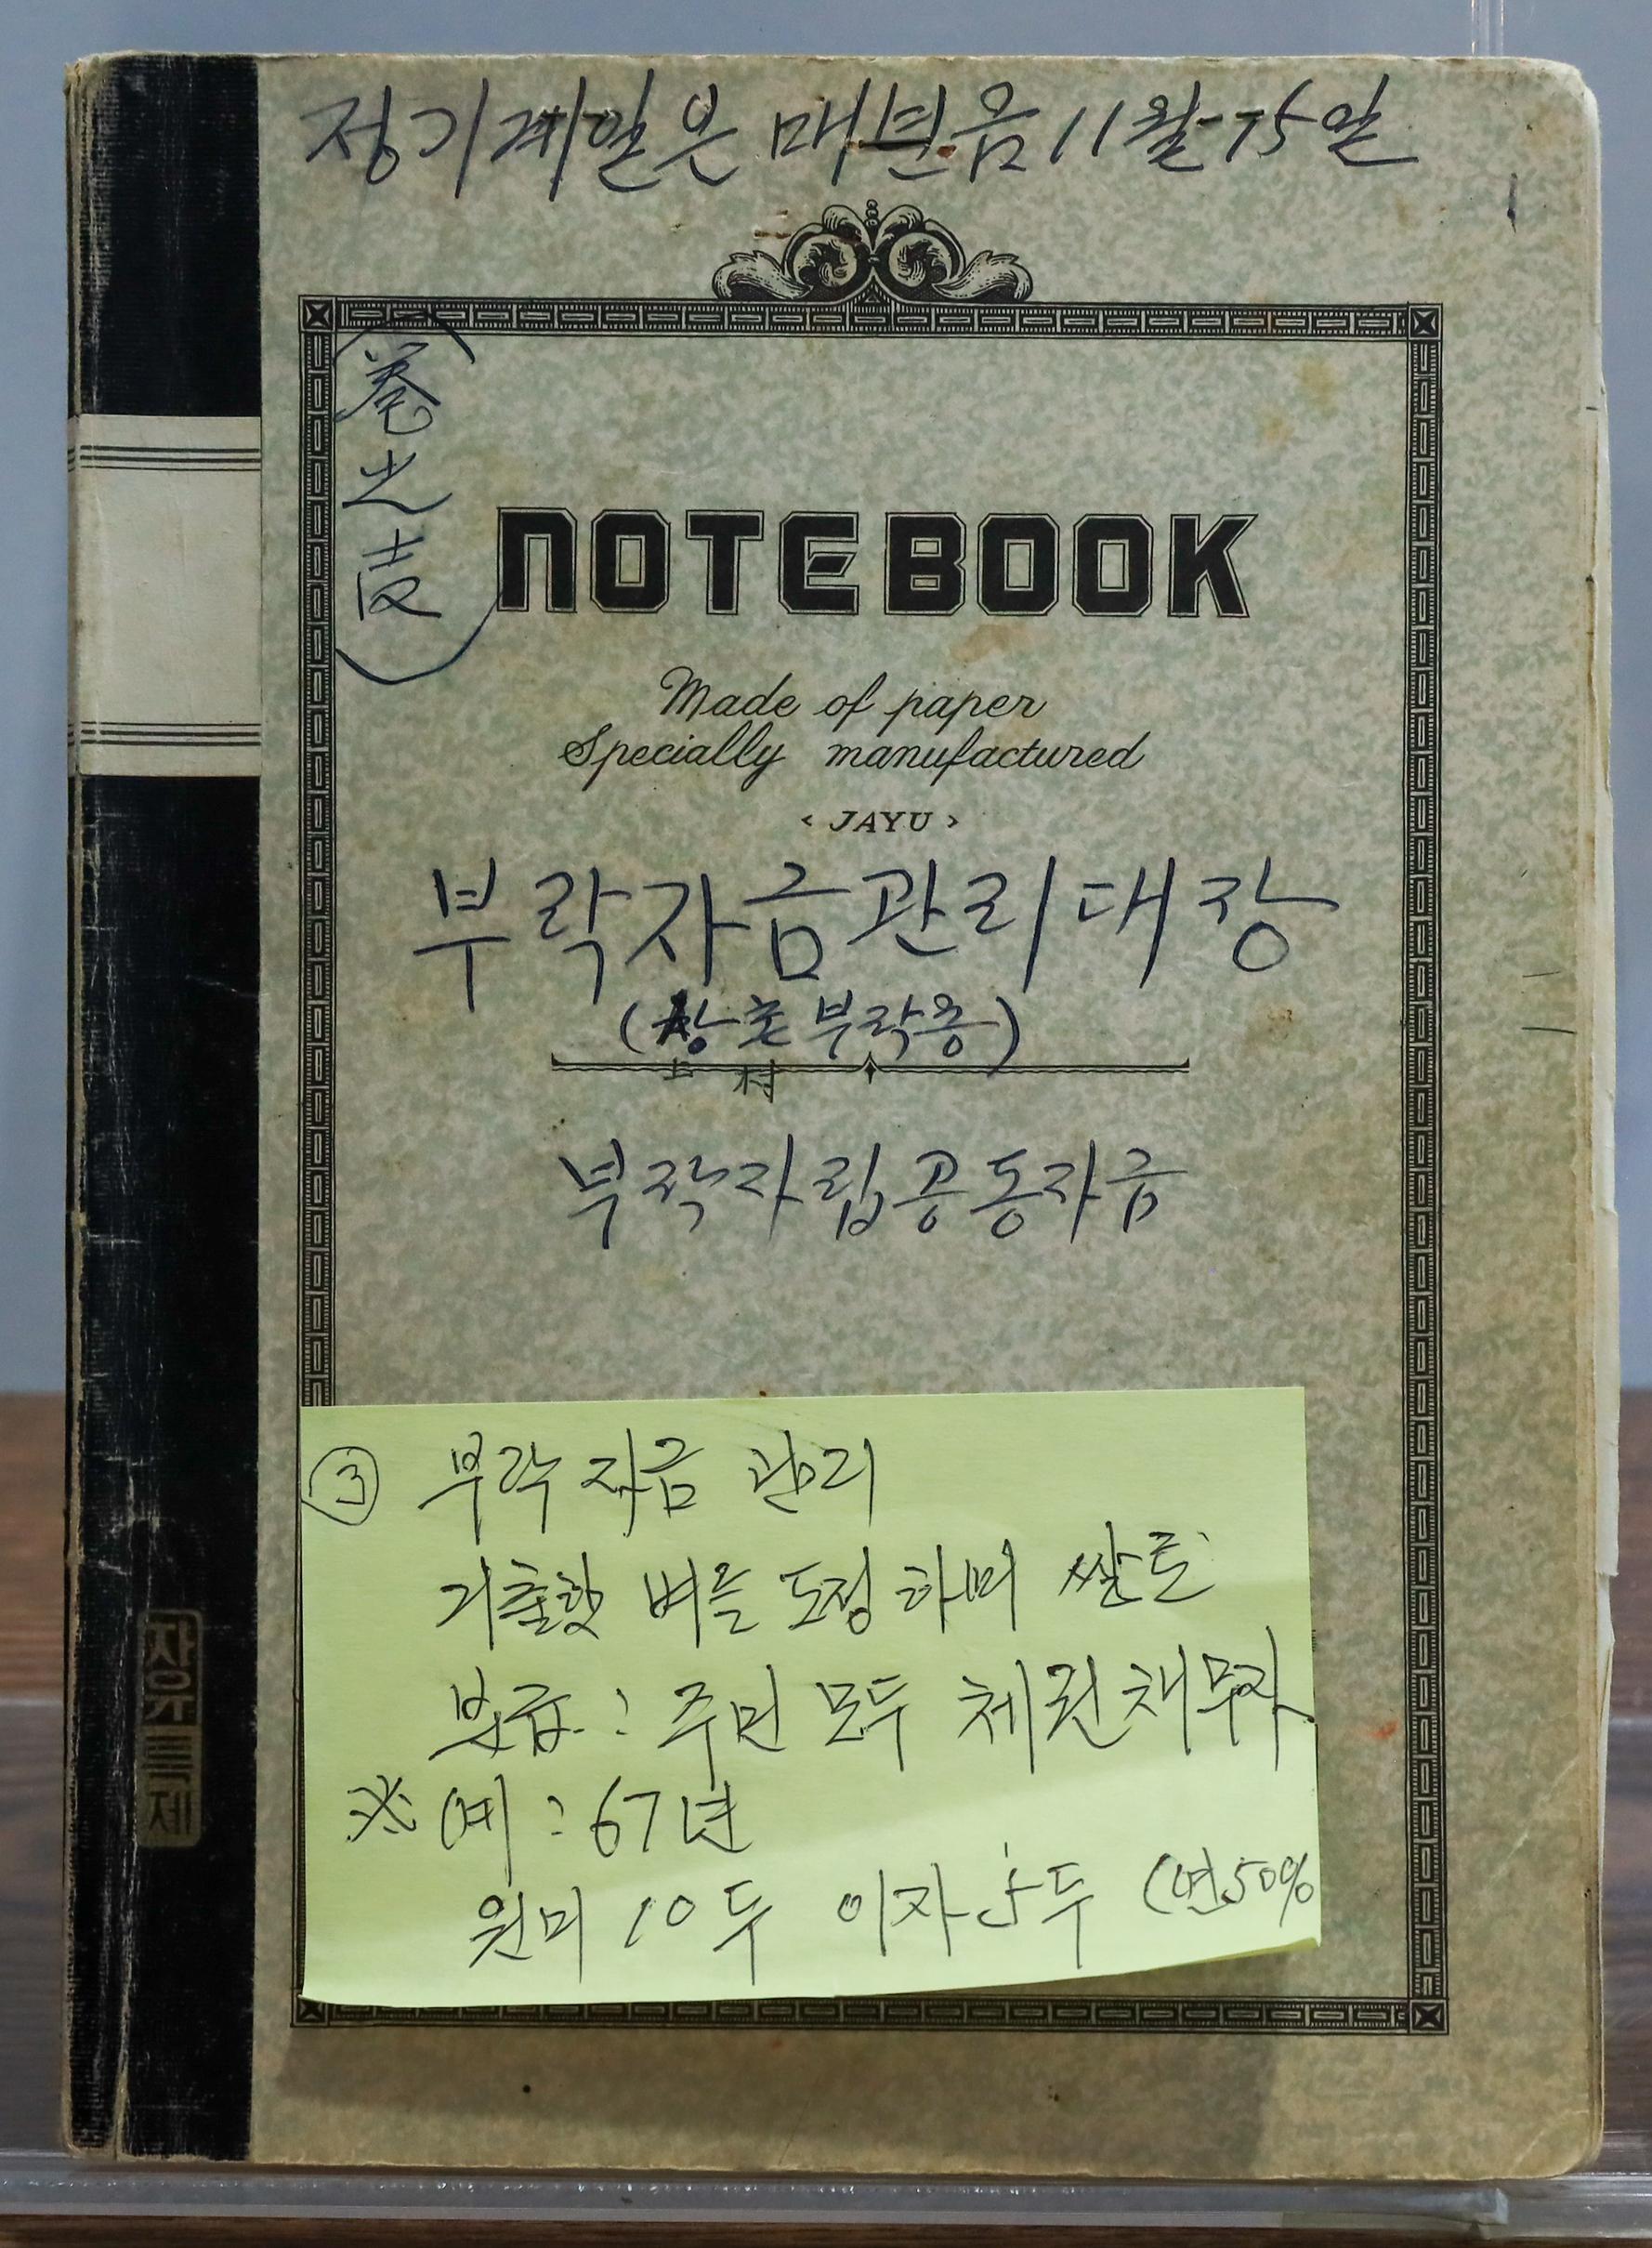 정기계일은 매년음11월15일
(卷之壹)
NOTEBOOK
Made of paper
Specially manufactured
< JAYU >
부락자금관리대장
(상촌부락용)
上 村
부락자립공동자금
③ 부락자금 관리
기출한 벼를 도정하며 쌀로
보급 : 주민 모두 체권채무자
※ 예 : 67년
원미 10두 이자 5두 (연50%
자유특제